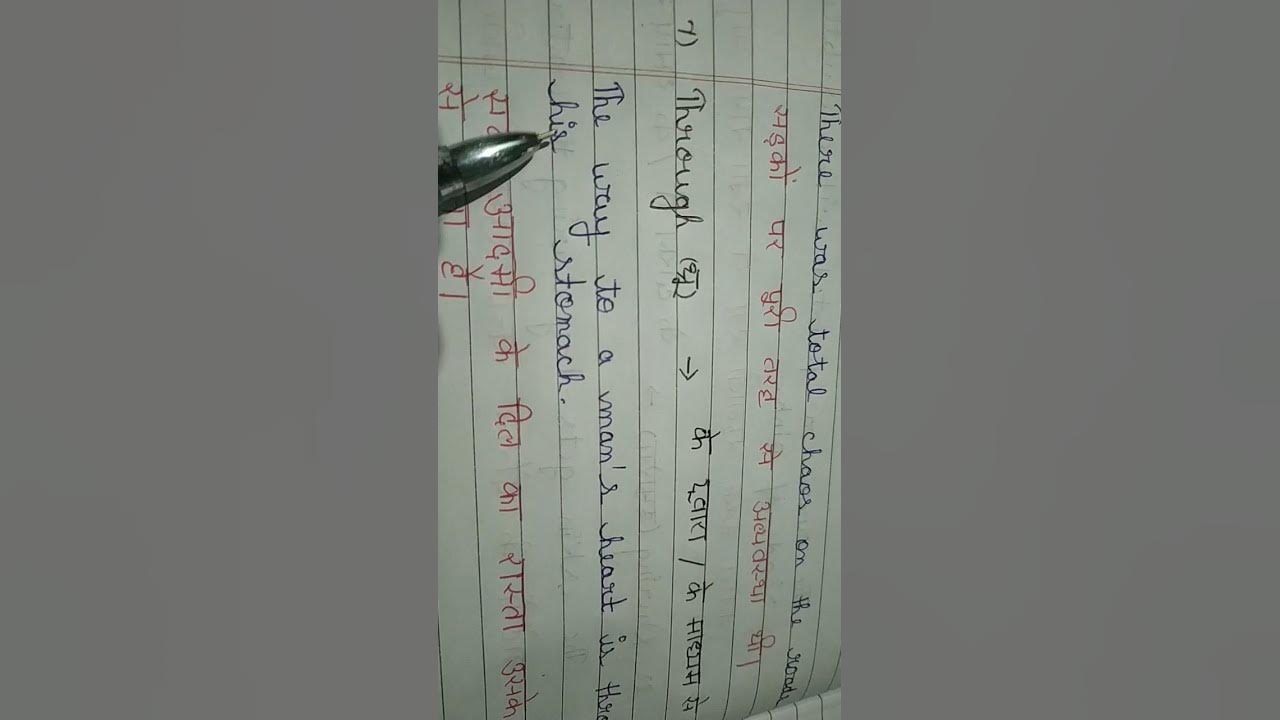 There was total chaos on the roads
सड़कों पर पूरी तरह से अव्यवस्था थी।
7) Through (थ्रू) → के द्वारा / के माध्यम से
The way to a man's heart is thro
his stomach.
आदमी के दिल का रास्ता उसके
से है।